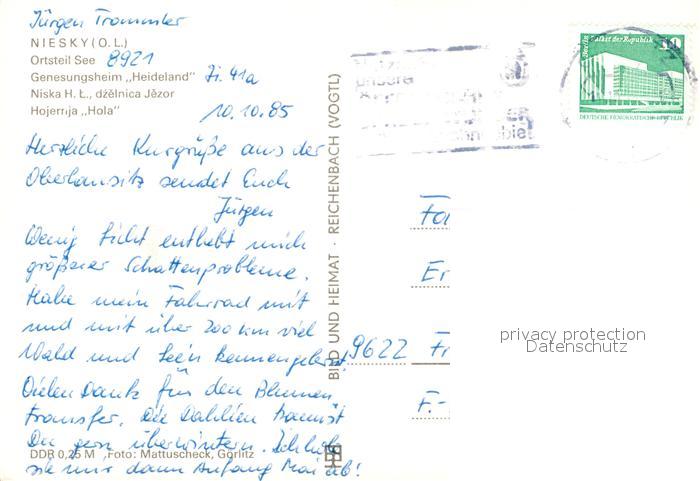 Jürgen Trommler
NIESKY (O. L.)
Ortsteil See 8921
Genesungsheim „Heideland" Zi. 41a
Niska H. Ł., dźělnica Jězor
Hojernja „Hola"
10.10.85
Herzliche Kurgrüße aus der
Oberlausitz sendet Euch
Jürgen
Wenig Licht enthebt mich
größerer Schattenprobleme.
Habe mein Fahrrad mit
und mit über 200 km viel
Wald und Seen kennengelernt.
Vielen Dank für den Blumen
transfer. Die Dahlien kannst
Du gern überwintern. Ich hole
sie mir dann Anfang Mai ab!
DDR 0,25 M Foto: Mattuscheck, Görlitz
BILD UND HEIMAT · REICHENBACH (VOGTL)
unsere
Berlin, Palast der Republik 10
DEUTSCHE DEMOKRATISCHE REPUBLIK
Fa
Er
9622 Fr
F.-
privacy protection
Datenschutz